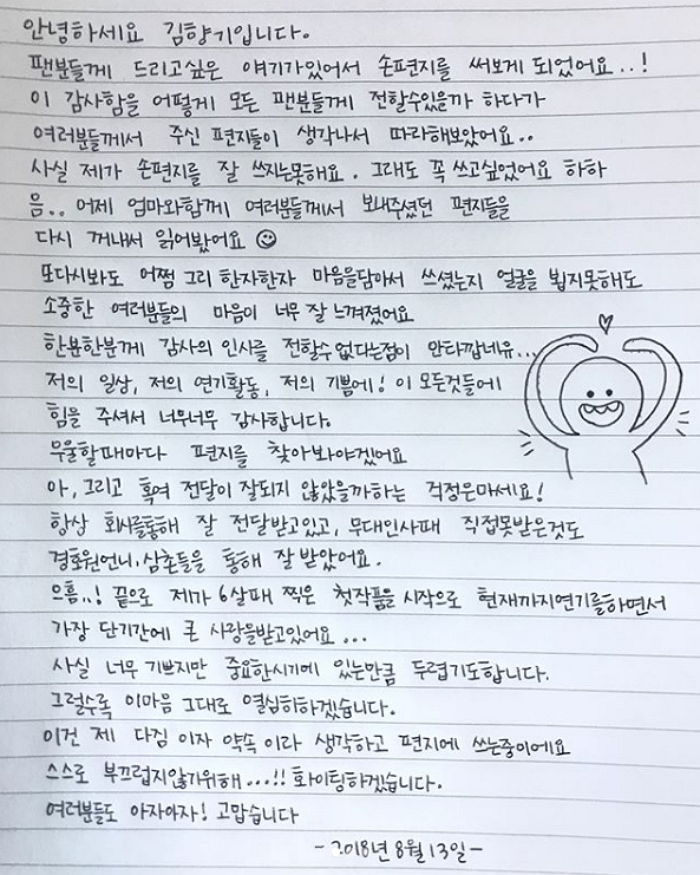 안녕하세요 김향기입니다.
팬분들께 드리고싶은 얘기가있어서 손편지를 써보게 되었어요..!
이 감사함을 어떻게 모든 팬분들께 전할수있을까 하다가
여러분들께서 주신 편지들이 생각나서 따라해보았어요..
사실 제가 손편지를 잘 쓰지는못해요. 그래도 꼭 쓰고싶었어요 하하
음.. 어제 엄마와함께 여러분들께서 보내주셨던 편지들을
다시 꺼내서 읽어봤어요
또다시봐도 어쩜 그리 한자한자 마음을담아서 쓰셨는지 얼굴을 뵙지못해도
소중한 여러분들의 마음이 너무 잘 느껴졌어요
한분한분께 감사의 인사를 전할수 없다는점이 안타깝네유...
저의 일상, 저의 연기활동, 저의 기쁨에! 이 모든것들에
힘을 주셔서 너무너무 감사합니다.
우울할때마다 편지를 찾아봐야겠어요
아, 그리고 혹여 전달이 잘되지 않았을까하는 걱정은마세요!
항상 회사를통해 잘 전달받고있고, 무대인사때 직접못받은것도
경호원언니·삼촌들을 통해 잘 받았어요.
으흠..! 끝으로 제가 6살때 찍은 첫작품을 시작으로 현재까지연기를하면서
가장 단기간에 큰 사랑을받고있어요...
사실 너무 기쁘지만 중요한시기에 있는만큼 두렵기도합니다.
그럴수록 이마음 그대로 열심히하겠습니다.
이건 제 다짐 이자 약속 이라 생각하고 편지에 쓰는중이에요
스스로 부끄럽지않가위해...!! 화이팅하겠습니다.
여러분들도 아자아자! 고맙습니다
-2018년 8월 13일-